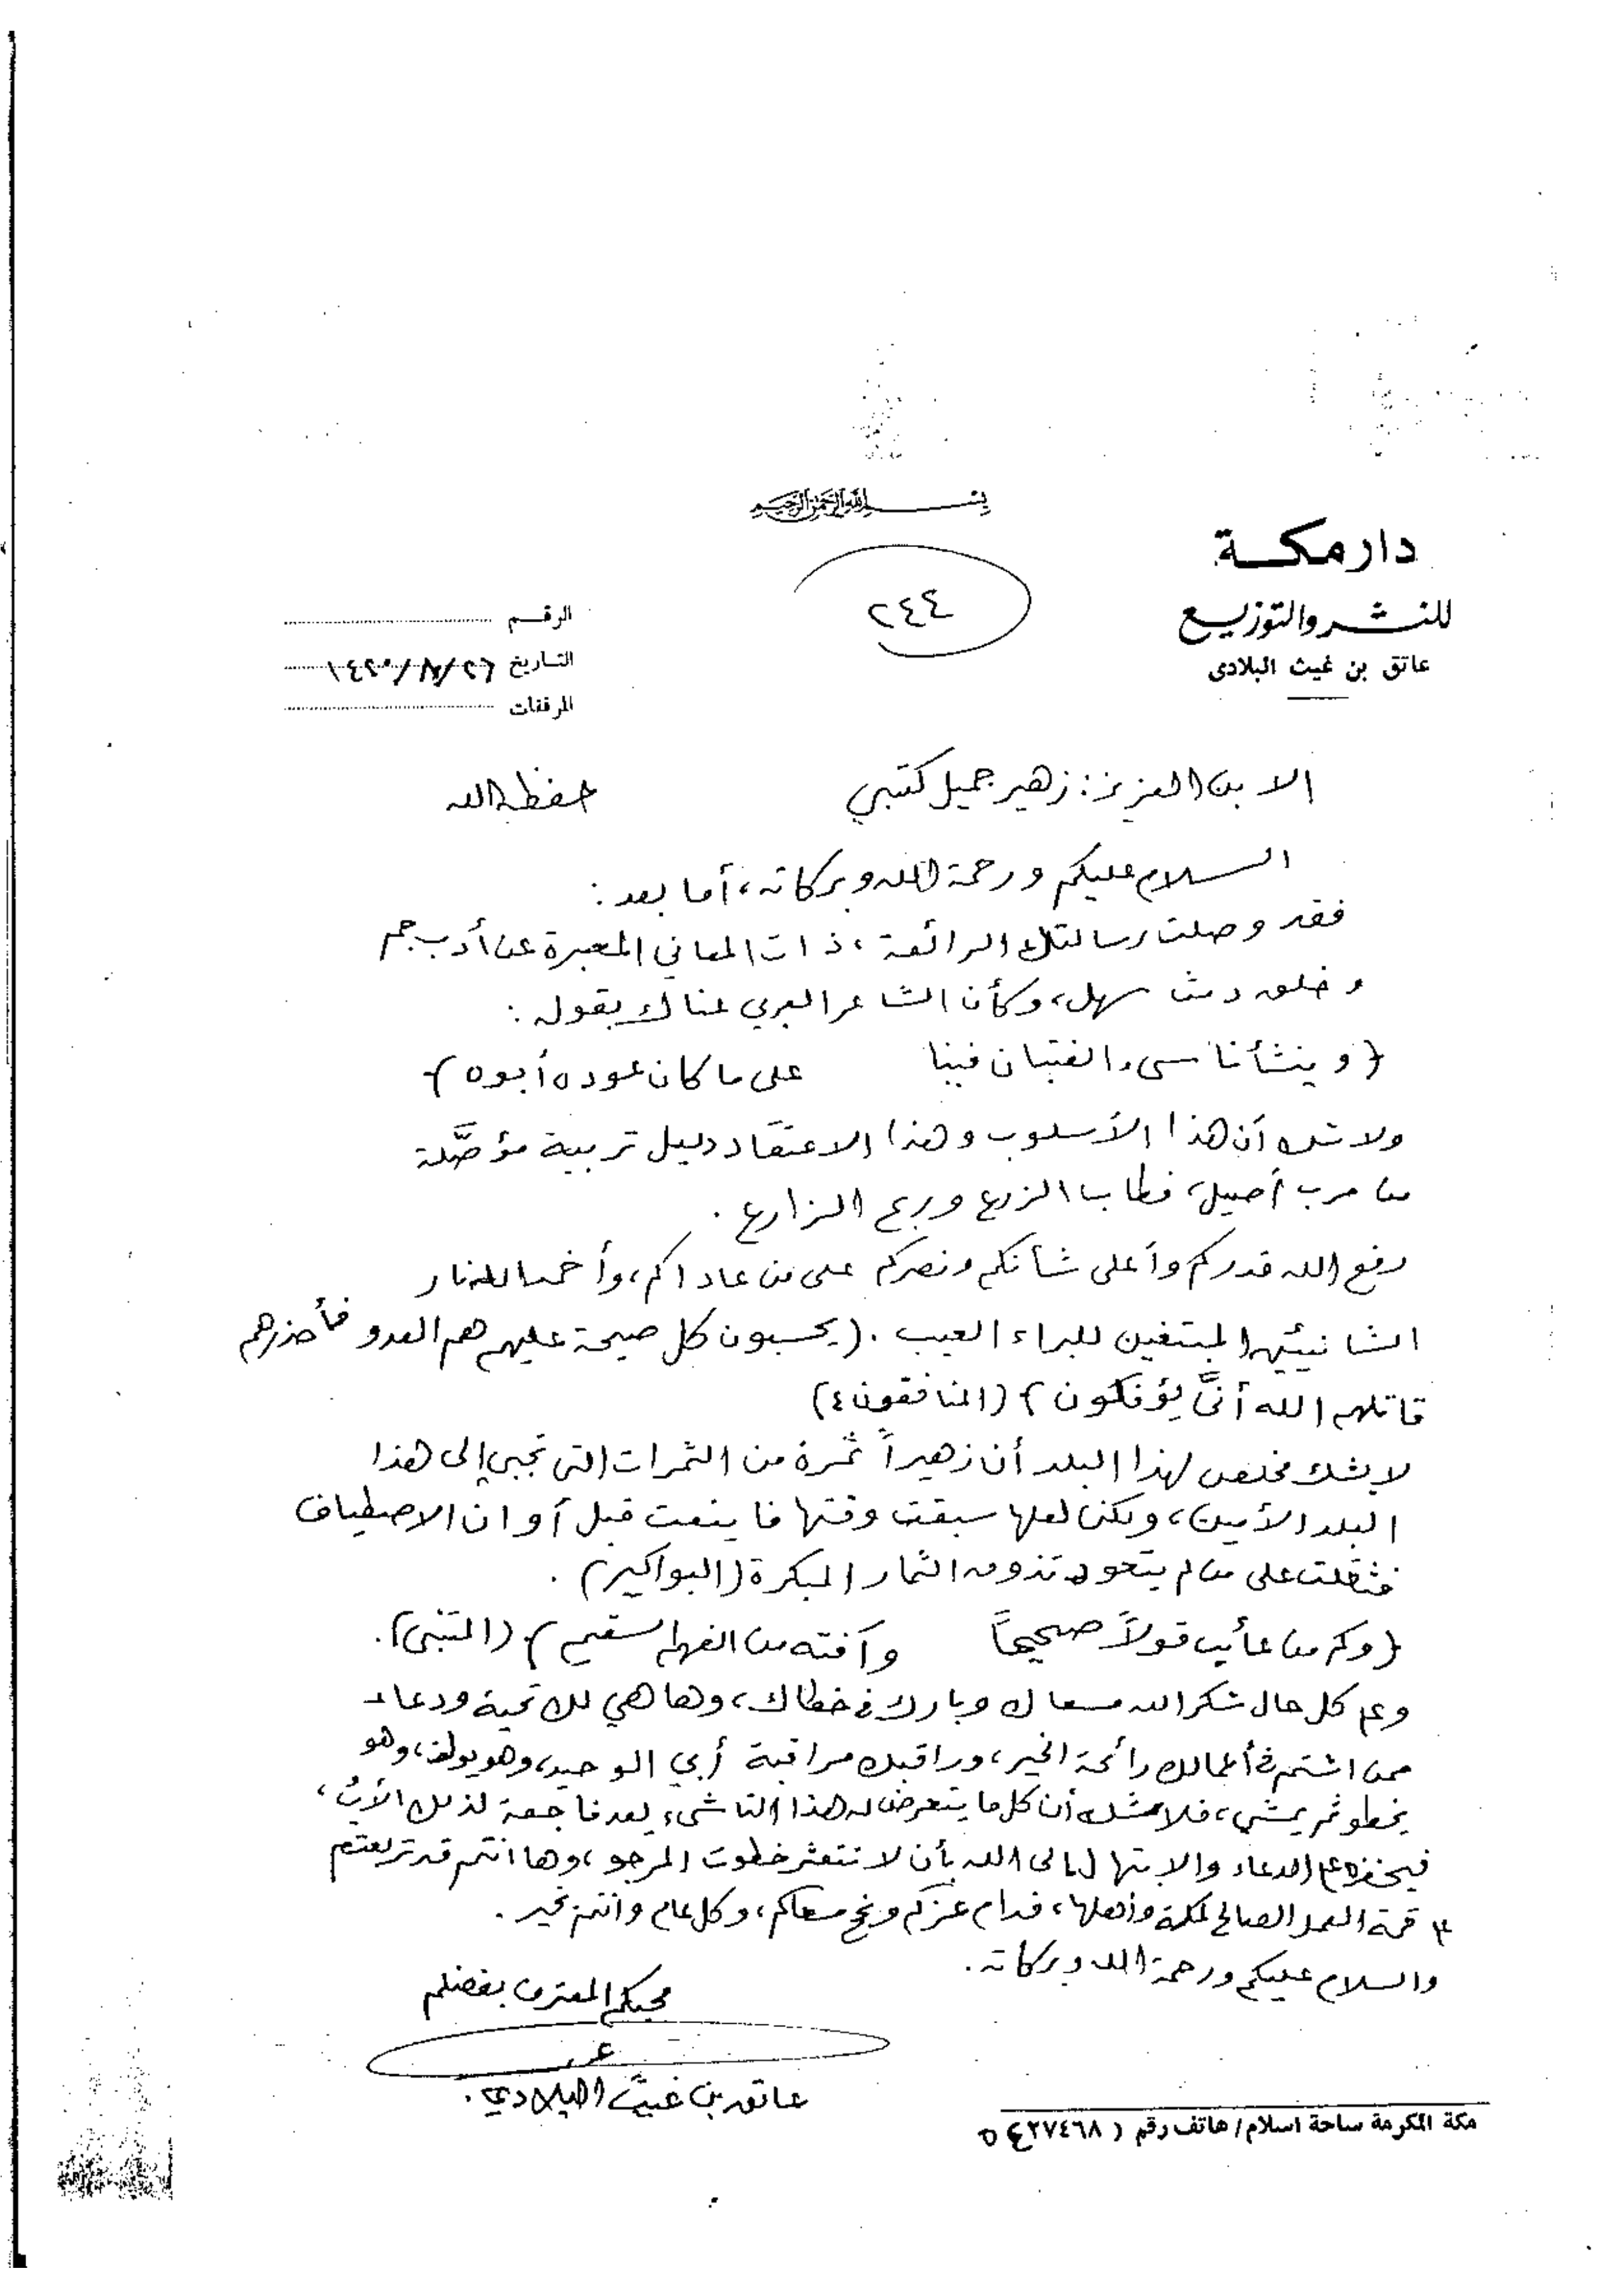 بسم الله الرحمن الرحيم
دار مكة
للنشر والتوزيع
عاتق بن غيث البلادى
٢٤٤
الرقم
التاريخ ٢٦/٨/١٤٢٠
المرفقات
الابن العزيز: زهير جميل كتبي حفظه الله
السلام عليكم ورحمة الله وبركاته، أما بعد:
فقد وصلت رسالتك الرائعة، ذات المعاني المعبرة عن أدب جم
وخلق دمث سهل، وكأن الشاعر العربي عناك بقوله:
{وينشأ ناشىء الفتيان فينا على ما كان عوده أبوه}
ولا شك أن هذا الأسلوب وهذا الاعتقاد دليل تربية مؤصَّلة
من مرب أصيل، فطاب الزرع وربح الزارع.
رفع الله قدركم وأعلى شأنكم ونصركم على من عاداكم، وأخمد الله نار
الشانئين المبتغين للبراء العيب. (يحسبون كل صيحة عليهم هم العدو فأحذرهم
قاتلهم الله أنَّى يؤفكون} (المنافقون ٤)
لا يشك مخلص لهذا البلد أن زهيراً ثمرة من الثمرات التي تجبى إلى هذا
البلد الأمين، ولكن لعلها سبقت وقتها فاينعت قبل أوان الاصطياف
فثقلت على من لم يتعود تذوق الثمار المبكرة (البواكير).
{وكم من عأيب قولاً صحيحاً وآفته من الفهم السقيم} (المتنبي).
وعلى كل حال شكر الله مسعاك وبارك في خطاك، وها هي لك تحية ودعاء
ممن اشتم في أعمالك رائحة الخير، وراقبك مراقبة أبي الوحيد، وهو يولد، وهو
يخطو ثم يمشي، فلا شك أن كل ما يتعرض له هذا الناشىء يعد فاجعة لذلك الأبُ،
الدعاء والابتهال إلى الله بأن لا تتعثر خطوت المرجو، وها انتم قد تربعتم
قمة العمل الصالح لمكة وأهلها، فدام عزكم ونجح مسعاكم، وكل عام وانتم بخير.
والسلام عليكم ورحمة الله وبركاته.
محبكم المعترف بفضلكم
عاتق بن غيث البلادي.
مكة المكرمة ساحة اسلام/هاتف رقم